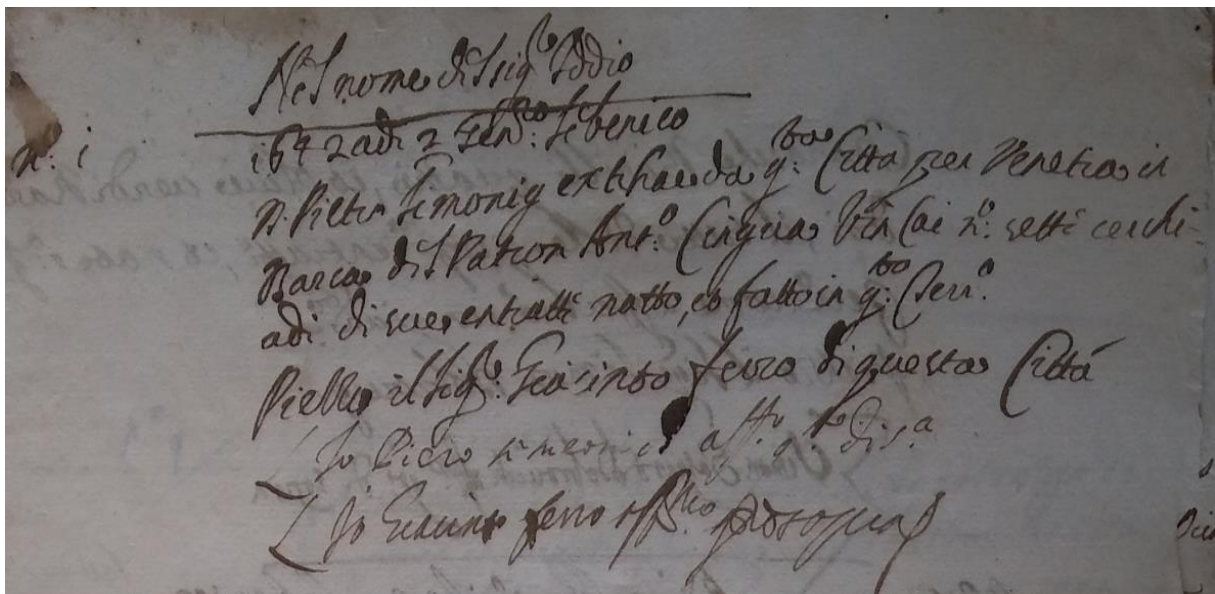 Nel nome del Sig.re Iddio
n.º i
1642 adi 2 Gen.ro Sebenico
P. Pietro Simonig extrhae da q.sta Città per Venetia in
Barca di Patron Ant.º Cinquia Vin Cai n.º setti cerchi-
adi di sue entratti natto, et fatto in q.sto Terr.º
Pieggio il Sig.r Giacinto ferro di questa Città
Io Piero simonich aff.º q.to di s.a
Io Giacinto ferro